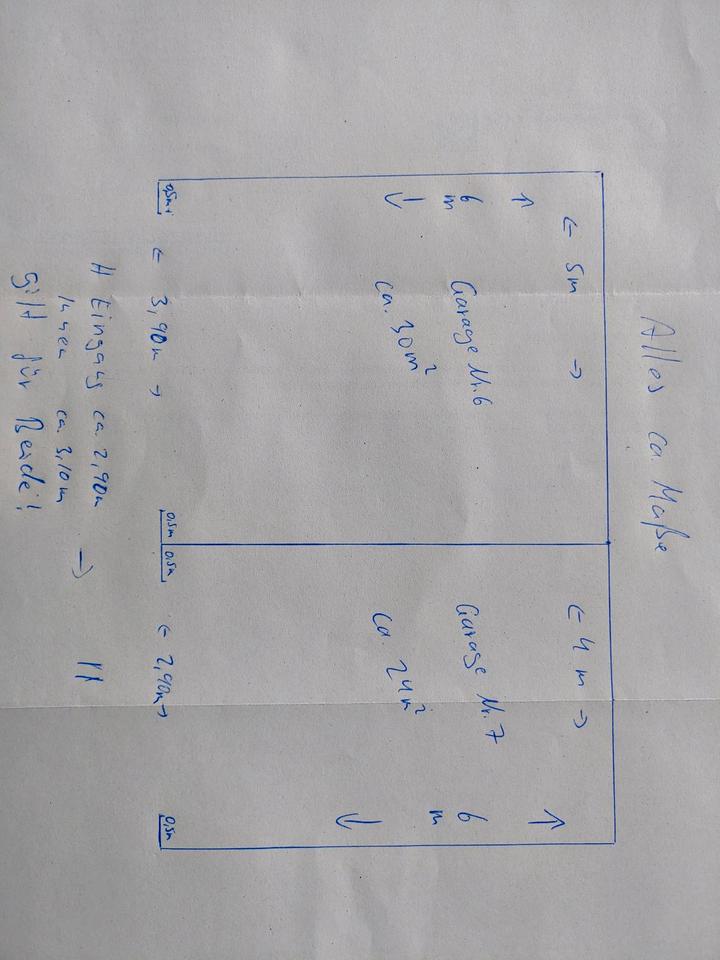 Alles ca. Maße
← 5m →
← 4 m →
↑
6
m
↓
Garage Nr. 6
ca. 30m²
Garage Nr. 7
ca. 24m²
↑
6
m
↓
0,5m
0,5m
0,5m
0,5m
← 3,90m →
← 2,90m →
H Eingang ca. 2,90m
Innen ca. 3,10m → 11
Gilt für Beide!